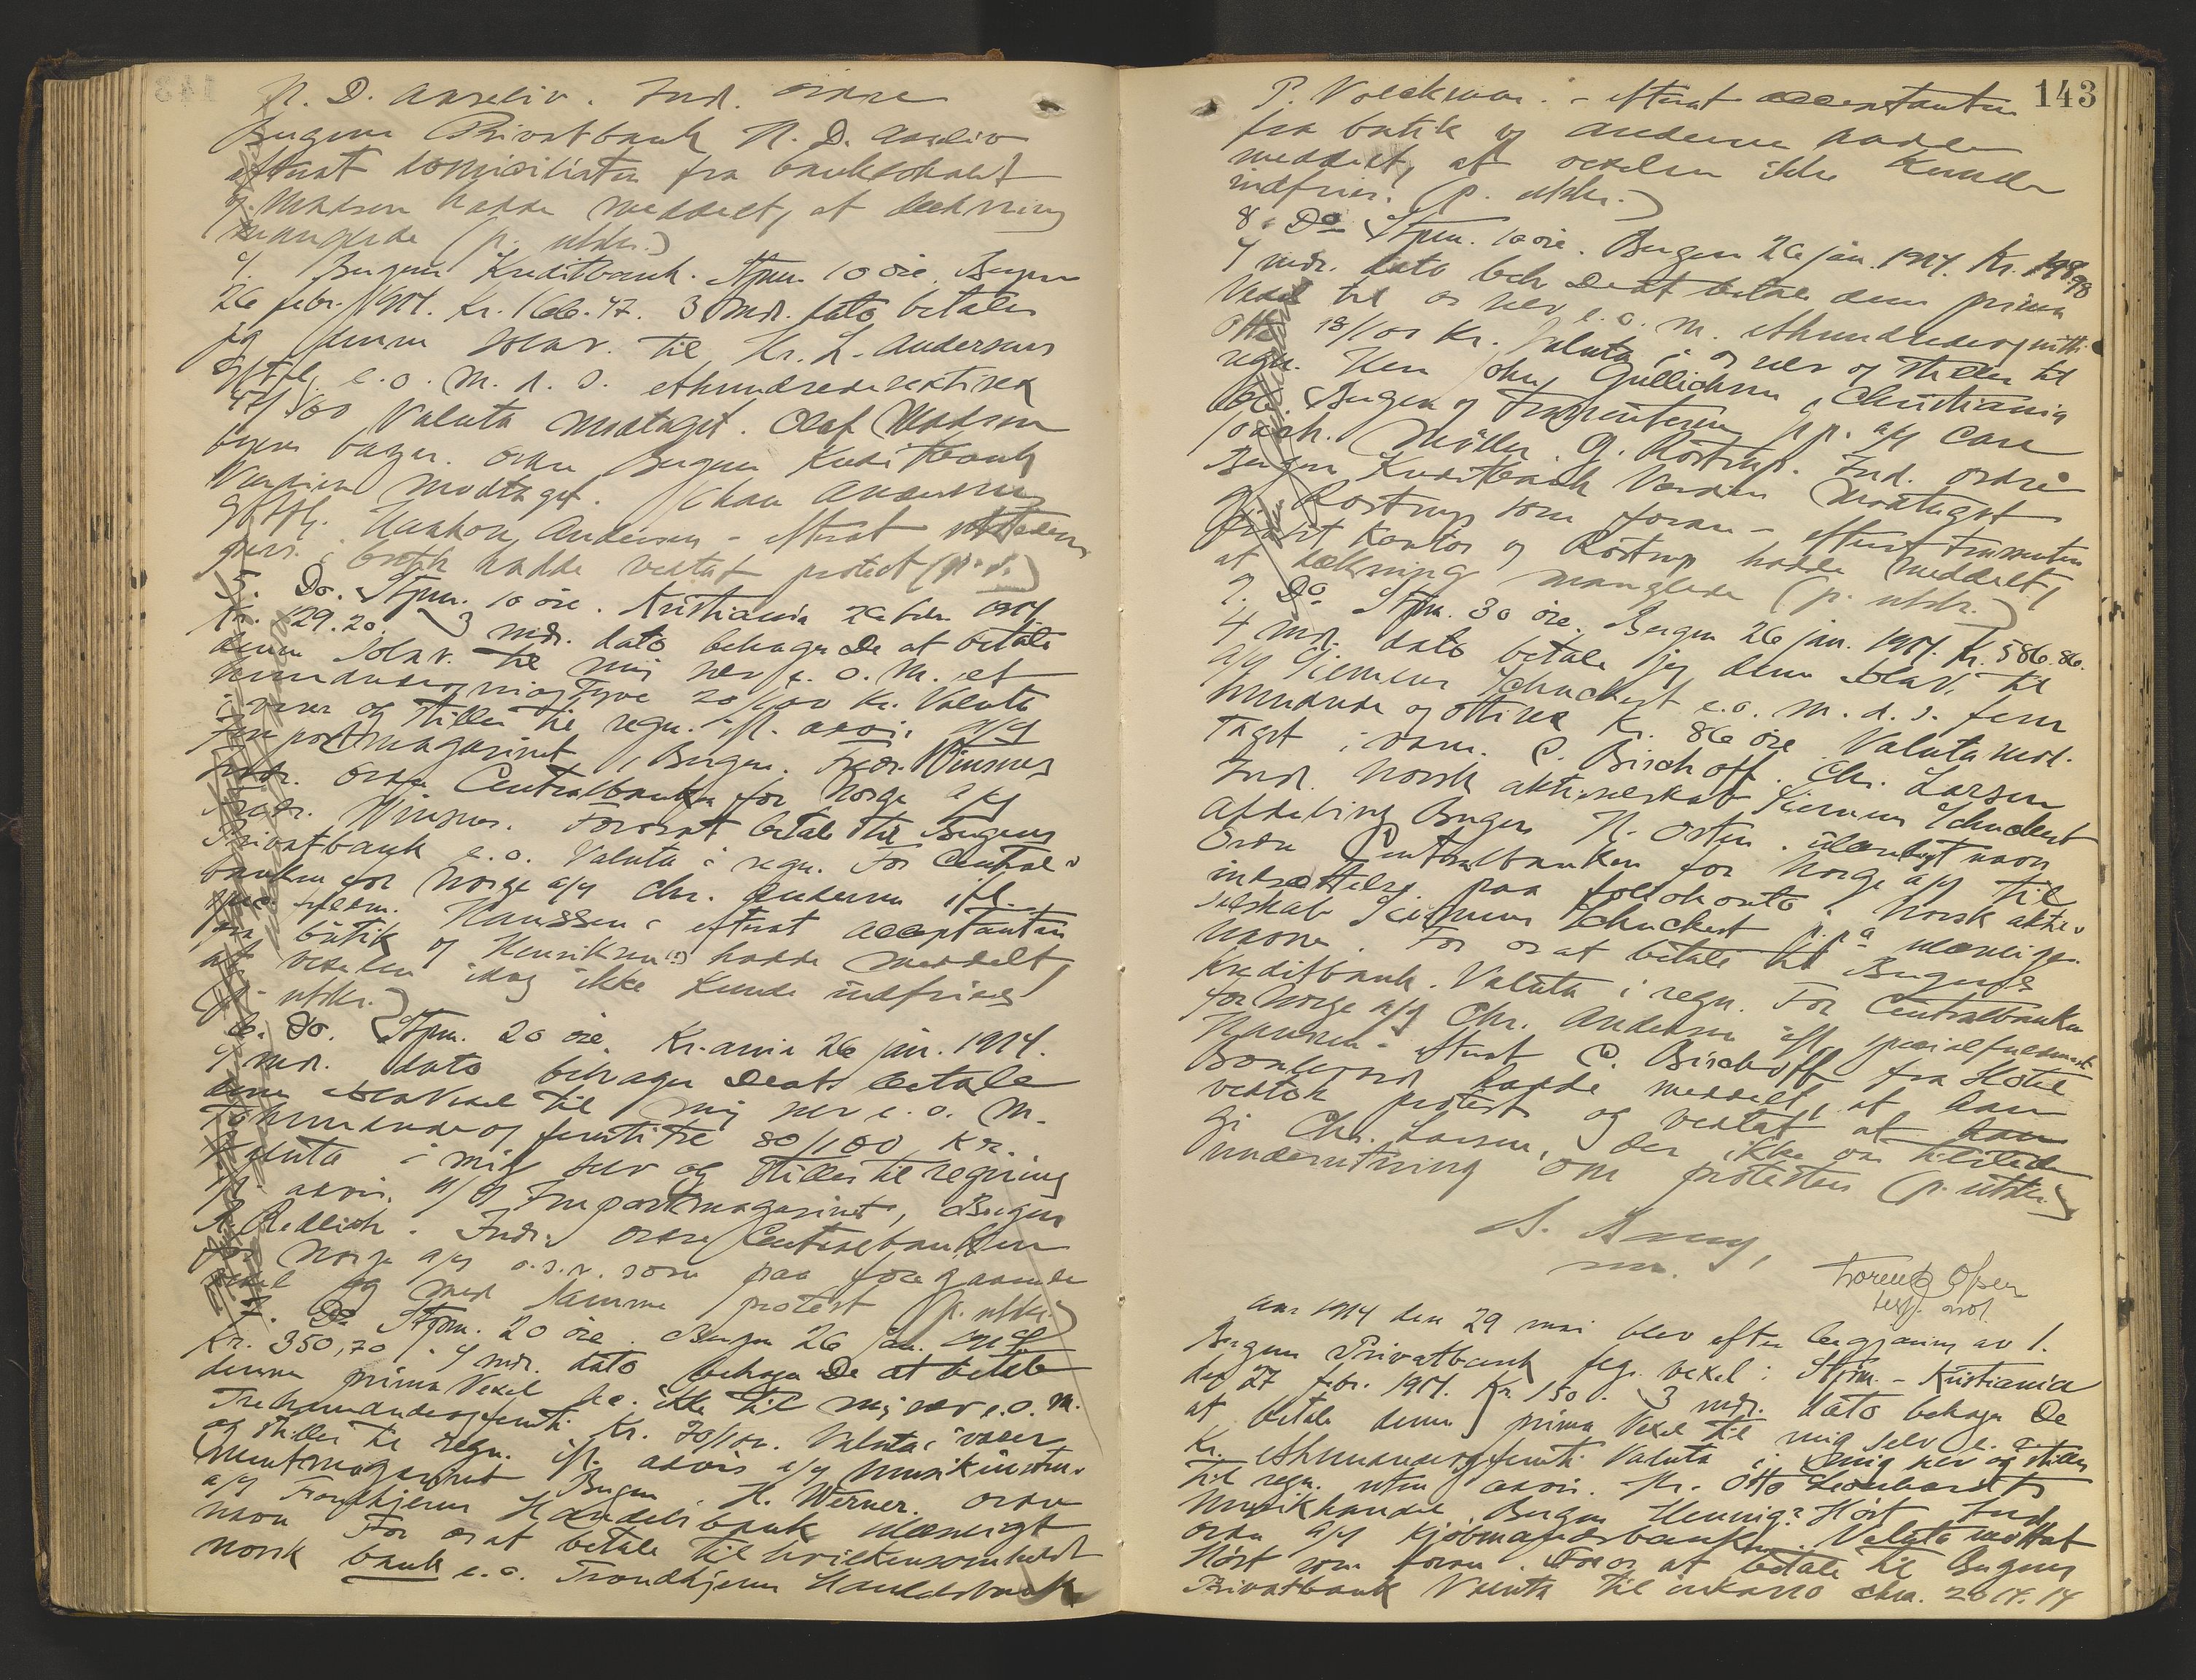 N. D. Aarseliv. Ind. ordre
Bergens Privatbank N. D. Aarseliv
efterat domiciliaten fra banklokalet
og Madsen hadde meddelt, at dekning
manglede (p. utskr.)
4. Bergens Kreditbank. Stpm. 10 øre. Bergen
26 febr. 1914. Kr. 166.47. 3 mdr. dato betaler
jeg denne solav. til Hr. L. Andersens
Eftflg. e. o. m. d. s. ethundredesekstisex
47/100 Valuta modtaget. Olaf Madsen
ordre Bergens Kreditbank
Værdien modtaget. Johan Andersens
Eftflg. Haakon Andersen - efterat
hadde vedtat protest (p. u.)
5. Do. Stpm. 10 øre. Kristiania 26 febr. 1914.
Kr. 129.20. 3 mdr. dato behager De at betale
denne solav. til mig selv e. o. m. et
hundredeogniogtyve 20/100 Kr. Valuta
i varer og stilles til regn. ifl. advis. A/S
Importmagasinet, Bergen. Fredr. Winsnes
Indr. ordre Centralbanken for Norge A/S
Fredr. Winsnes. For os at betale til Bergens
Privatbank e. o. Valuta i regn. For Central-
banken for Norge A/S Chr. Andersen ifl.
spec. fuldm. Hanssen - efterat acceptanten
fra butik og Henriksen hadde meddelt,
at vexelen idag ikke kunde indfries
(p. utskr.)
6. Do. Stpm. 20 øre. Kr.ania 26 jan. 1914.
4 mdr. dato behager De at betale
denne vexel til mig selv e. o. m.
Tohundredeogfemtitre 80/100 Kr.
Valuta i mig selv og stilles til regning
ifl. advis. A/S Importmagasinet, Bergen
A. Redlich. Indr. ordre Centralbanken
for Norge A/S o. s. v. som paa foregaaende
vexel og med samme protest (p. utskr.)
7. Do. Stpm. 20 øre. Bergen 26 jan. 1914
Kr. 350,70. 4 mdr. dato behager De at betale
denne prima Vexel sec. ikke til mig selv e. o. m.
Trehundredeogfemti Kr. 70/100. Valuta i varer
og stilles til regn. ifl. advis A/S Musikinstru-
mentmagasinet Bergen. H. Werner. ordre
A/S Trondhjems Handelsbank ulæseligt
navn For os at betale til hvilkensomhelst
norsk bank e. o. Trondhjems Handelsbank
143
P. Volckmar. - efterat acceptanten
fra butik og Andersen hadde
meddelt, at vexelen ikke kunde
indfries. (p. utskr.)
8. Do Stpm. 10 øre. Bergen 26 jan. 1914. Kr. 198.18
4 mdr. dato beh. De at betale denne prima
Vexel til os selv e. o. m. ethundredeognitti
otte 18/100 Kr. Valuta i os selv og stilles til
regn. Herr John Gullichsen, Christiania
Bergen og pp. A/S Carl
Joach. Møller. G. Rostrup. Ind. ordre
Bergens Kreditbank Værdien modtaget
G. Rostrup som foran - efterat trassenten
fra sit kontor og Rostrup hadde meddelt,
at dækning manglede (p. utskr.)
9. Do Stpm. 30 øre. Bergen 26 jan. 1914. Kr. 586.86.
4 mdr. dato betaler jeg denne solav. til
A/S Siemens Schuckert e. o. m. d. s. fem
hundrede og ottisex Kr. 86 øre. Valuta mod-
taget i varer. C. Bischoff. Chr. Larsen
Ind. Norsk aktieselskab Siemens Schuckert
Afdeling Bergen H. Osten. ulæseligt navn
Ordre Centralbanken for Norge A/S til
indsættelse paa foliokonto Norsk aktie-
selskab Siemens Schuckert p.p.a ulæselige
navne. For os at betale til Bergens
Kreditbank. Valuta i regn. For Centralbanken
for Norge A/S Chr. Andersen ifl. specialfuldmagt
Hanssen - efterat C. Bischoff fra Hotel
hadde meddelt, at han
vedtok protest og vedtat at han
gi Chr. Larsen, der ikke var tilstede
underretning om protesten (p. utskr.)
Lorentz Olsen
Aar 1914 den 29 mai blev efter begjæring av 1.
Bergens Privatbank flg. vexel: Stpm. - Kristiania
den 27 febr. 1914. Kr. 150. 3 mdr. dato behager De
at betale denne prima Vexel til mig selv e. o.
Kr. ethundredeogfemti Valuta i mig selv og stilles
til regn. uten advis. Hr. Otto Leonhardts
Musikhandel, Bergen Hennig? Hört Ind.
ordre A/S Kjøbmandsbanken. Valuta mottat
Hört som foran. For os at betale til Bergens
Privatbank Valuta til inkasso Chra. 20/4.14